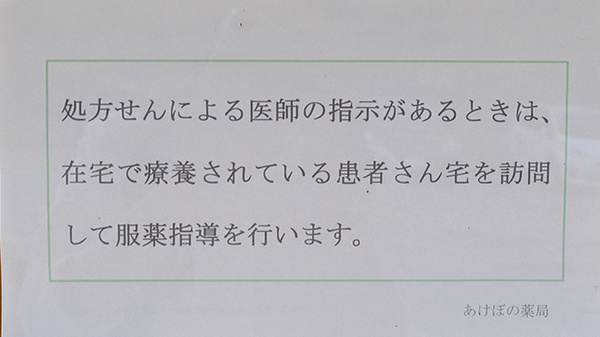 処方せんによる医師の指示があるときは、
在宅で療養されている患者さん宅を訪問
して服薬指導を行います。
あけぼの薬局